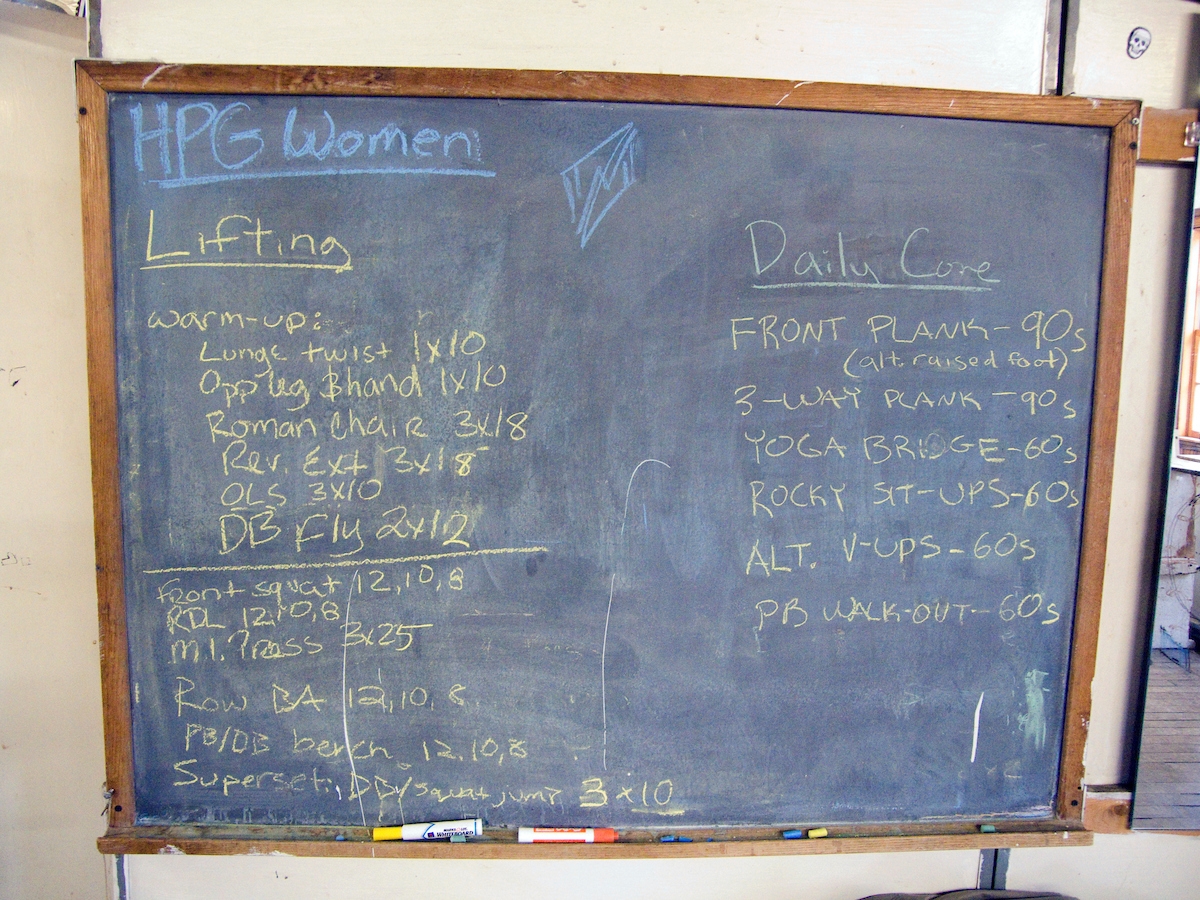 HPG Women
Lifting
warm-up:
Lunge twist 1x10
Opp leg & hand 1x10
Roman Chair 3x18
Rev. Ext 3x18
OLS 3x10
DB Fly 2x12
Front squat 12,10,8
RDL 12,10,8
M.I. Press 3x25
Row BA 12,10,8
PB/DB bench 12,10,8
Superset: DB/squat jump 3x10
Daily Core
FRONT PLANK-90s
(alt. raised foot)
3-WAY PLANK-90s
YOGA BRIDGE-60s
ROCKY SIT-UPS-60s
ALT. V-UPS-60s
PB WALK-OUT-60s
WHITEBOARD